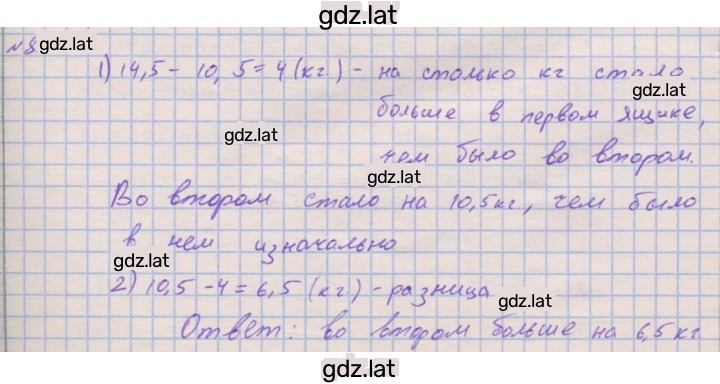 gdz.lat
№8 gdz.lat
1) 14,5 - 10,5 = 4 (кг.) - на столько кг стало
gdz.lat
больше в первом ящике,
gdz.lat
чем было во втором.
gdz.lat
Во втором стало на 10,5кг, чем было
в нем изначально
gdz.lat
2) 10,5 - 4 = 6,5 (кг.) - разница
gdz.lat
Ответ: во втором больше на 6,5 кг
gdz.lat